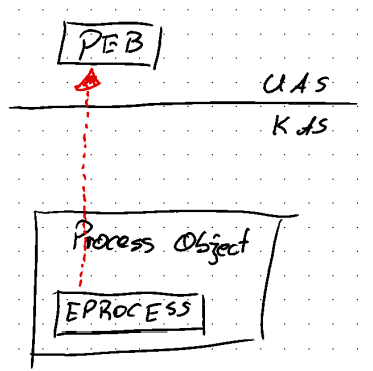 PEB
UAS
KAS
Process Object
EPROCESS